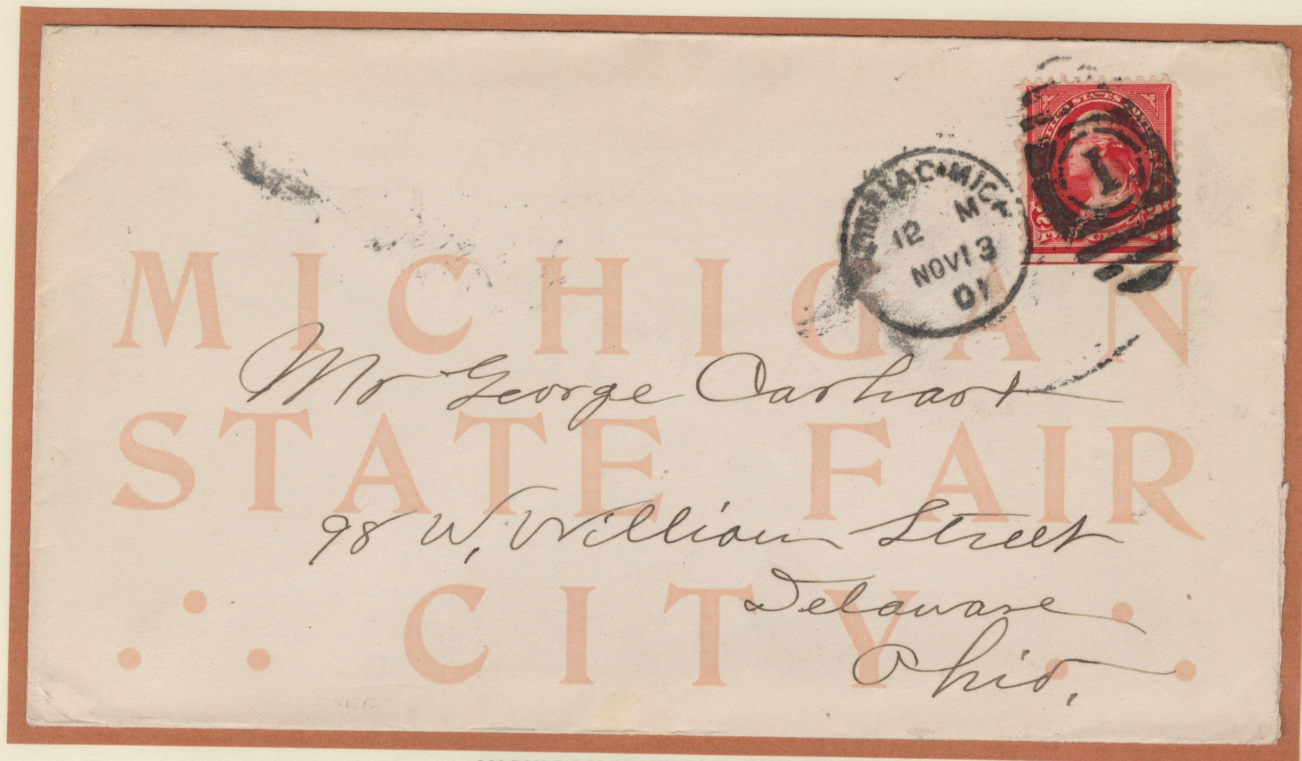 MICHIGAN
STATE FAIR
CITY
UNITED STATES
1
12 M
NOV 13
01
Mr George Carhart
98 W. William Street
Delaware
Ohio.